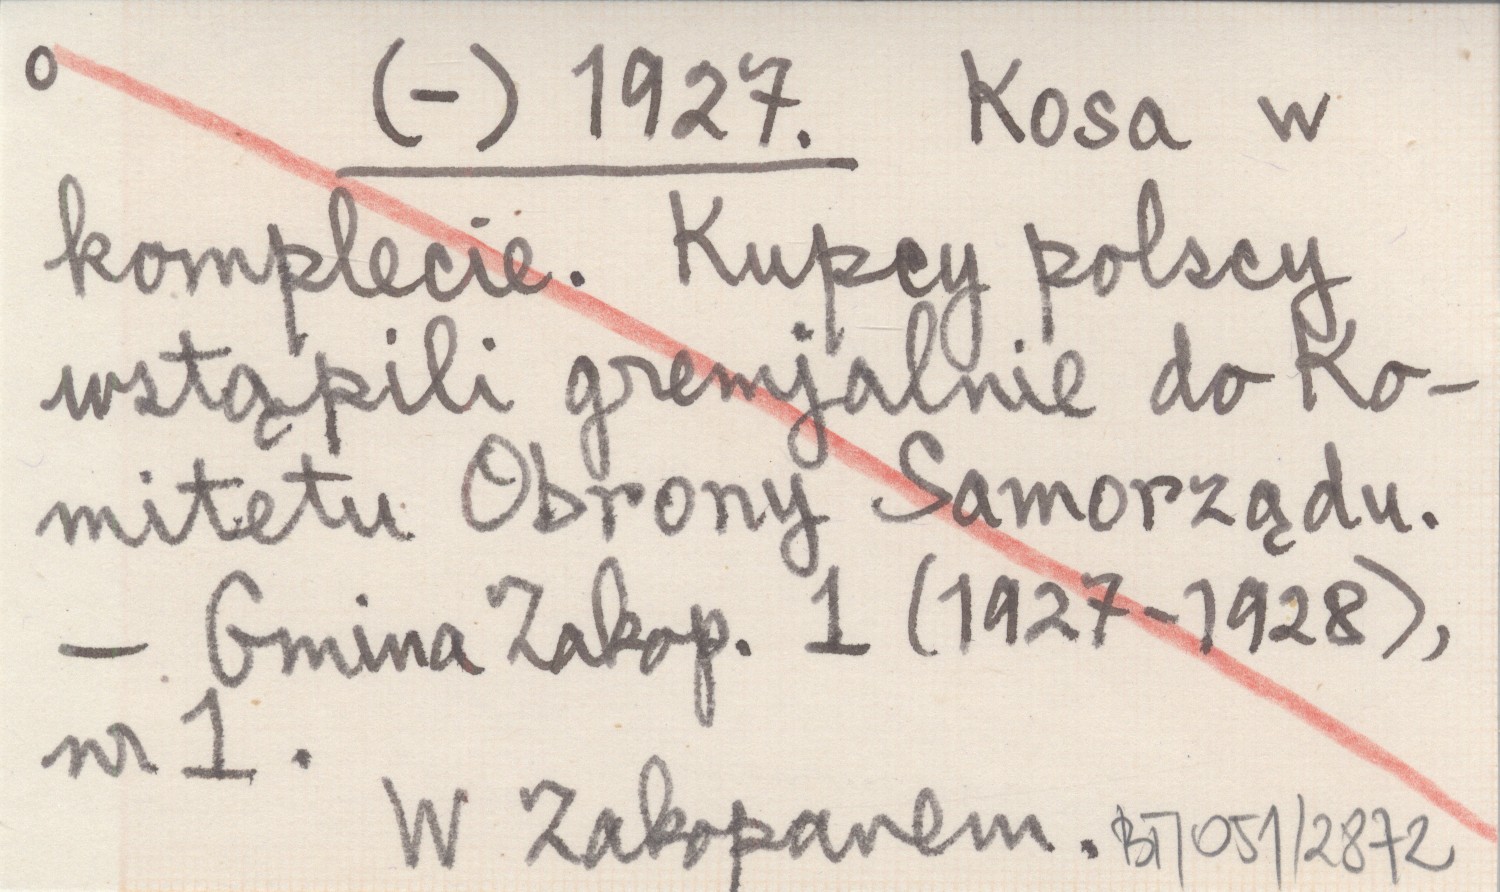 o (-) 1927. Kosa w
komplecie. Kupcy polscy
wstąpili gremjalnie do Ko-
mitetu Obrony Samorządu.
— Gmina Zakop. 1 (1927-1928),
nr 1.
W Zakopanem. BT/051/2872